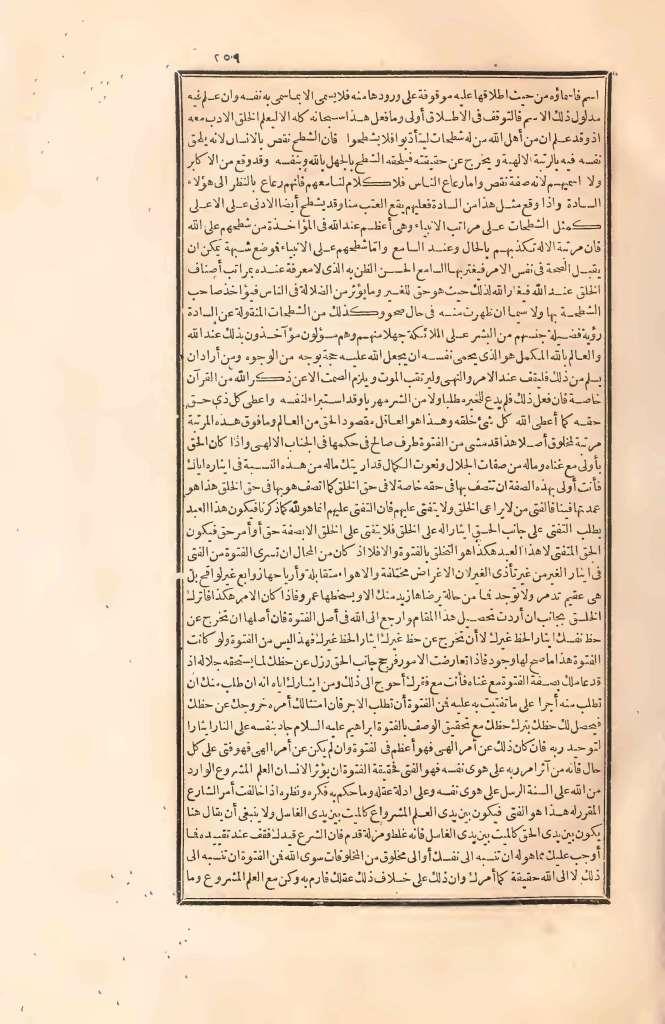 ٢٥٩
اسم فاسماؤه من حيث اطلاقها عليه موقوفة على ورودها منه فلا يسمى الا بما سمى به نفسه وان علم فيه
مدلول ذلك الاسم فالتوقف فى الاطلاق أولى وما فعل هذا سبحانه كله الا ليعلم الخلق الادب معه
اذ وقد علم ان من أهل الله من له شطحات ليتأدبوا فلا يشطحوا فان الشطح نقص بالانسان لانه يلحق
نفسه فيه بالرتبة الالهية ويخرج عن حقيقته فيلحقه الشطح بالجهل بالله وبنفسه وقد وقع من الاكابر
ولا اسميهم لانه صفة نقص وأما رعاع الناس فلا كلام لنا معهم فانهم رعاع بالنظر الى هؤلاء
السادة واذا وقع مثل هذا من السادة فعليهم يقع العتب منا وقد يشطح أيضا الادنى على الاعلى
كمثل الشطحات على مراتب الانبياء وهى أعظم عند الله فى المؤاخذة من شطحهم على الله
فان مرتبة الاله تكذبهم بالحال وعند السامع وانما شطحهم على الانبياء فموضع شبهة يمكن ان
يقبل الصحة فى نفس الامر فيغتر بها السامع الحسن الظن به الذى لا معرفة عنده بمراتب أصناف
الخلق عند الله فيغار الله لذلك حيث هو حق للغير وما يؤثر من الضلالة فى الناس فيؤاخذ صاحب
الشطحة بها ولا سيما ان ظهرت منه فى حال صحو وكذلك من الشطحات المنقولة عن السادة
رؤية فضيلة جنسهم من البشر على الملائكة جهلا منهم وهم مسؤلون مؤآخذون بذلك عند الله
والعالم بالله المكمل هو الذى يحمى نفسه ان يجعل الله عليه حجة بوجه من الوجوه ومن أراد ان
يسلم من ذلك فليقف عند الامر والنهى وليرتقب الموت ويلزم الصمت الا عن ذكر الله من القرآن
خاصة فان فعل ذلك فلم يدع للخير مطلبا ولا من الشر مهربا وقد استبرأ لنفسه واعطى كل ذى حق
حقه كما أعطى الله كل شئ خلقه وهذا هو العاقل مقصود الحق من العالم وما فوق هذه المرتبة
مرتبة لمخلوق أصلا هذا قد مشى من الفتوة طرف صالح فى حكمها فى الجناب الالهى واذا كان الحق
بأولى مع غناه وماله من صفات الجلال ونعوت الكمال قد اربتك ماله من هذه النسبة فى ايثاره اياك
فأنت أولى بهذه الصفة ان تتصف بها فى حقه خاصة لا فى حق الخلق كما اتصف هو بها فى حق الخلق هذا هو
عمدتها فينا فالفتى من لا يراعى الخلق ولا يتفتى عليهم فان التفتى عليهم انما هو لله كما ذكرنا فيكون هذا العبد
يطلب التفتى على جانب الحق ايثارا له على الخلق فلا يتفتى على الخلق الا بصفة حق أو أمر حق فيكون
الحق المتفتى لا هذا العبد هكذا هو التخلق بالفتوة والا فلا اذ كان من المحال ان تسرى الفتوة من الفتى
فى ايثار الغير من غير تأذى الغير لان الاغراض مختلفة والاهواء متقابلة وأرياحها زوابع غير لواقح بل
هى عقيم تدمر ولا توجد فما من حالة يرضاها زيد منك الا ويسخطها عمرو فاذا كان الامر هكذا فاترك
الخلق بجانب ان أردت تحصيل هذا المقام وارجع الى الله فى أصل الفتوة فان أصلها ان تخرج عن
حظ نفسك ايثارا لحظ غيرك لا أن تخرج عن حظ غيرك ايثارا لحظ غيرك فهذا ليس من الفتوة ولو كانت
الفتوة هذا ما صح لها وجود فاذا تعارضت الامور فرجح جانب الحق وزل عن حظك لما يستحقه جلاله اذ
قد عاملك بصفة الفتوة مع غناه فأنت مع فقرك أحوج الى ذلك ومن ايثارك اياه انه ان طلب منك ان
تطلب منه أجرا على ما تفتيت به عليه فمن الفتوة أن تطلب الاجر فان امتثالك أمره خروجك عن حظك
فيحصل لك حظك بترك حظك مع تحقيق الوصف بالفتوة ابراهيم عليه السلام جاد بنفسه على النار ايثارا
لتوحيد ربه فان كان ذلك عن أمر الهى فهو أعظم فى الفتوة وان لم يكن عن أمر الهى فهو فتى على كل
حال فانه من آثر أمر ربه على هوى نفسه فهو الفتى فحقيقة الفتوة ان يؤثر الانسان العلم المشروع الوارد
من الله على السنة الرسل على هوى نفسه وعلى ادلة عقله وما حكم به فكره ونظره اذا خالفت أمر الشارع
المقرر له هذا هو الفتى فيكون بين يدى العلم المشروع كالميت بين يدى الغاسل ولا ينبغى أن يقال هنا
يكون بين يدى الحق كالميت بين يدى الغاسل فانه غلط ومزلة قدم فان الشرع قيدك فقف عند تقييده فما
أوجب عليك مما هو له ان تنسبه الى نفسك أو الى مخلوق من المخلوقات سوى الله فمن الفتوة ان تنسبه الى
ذلك لا الى الله حقيقة كما أمرك وان ذلك على خلاف ذلك عقلك فارم به وكن مع العلم المشروع وما